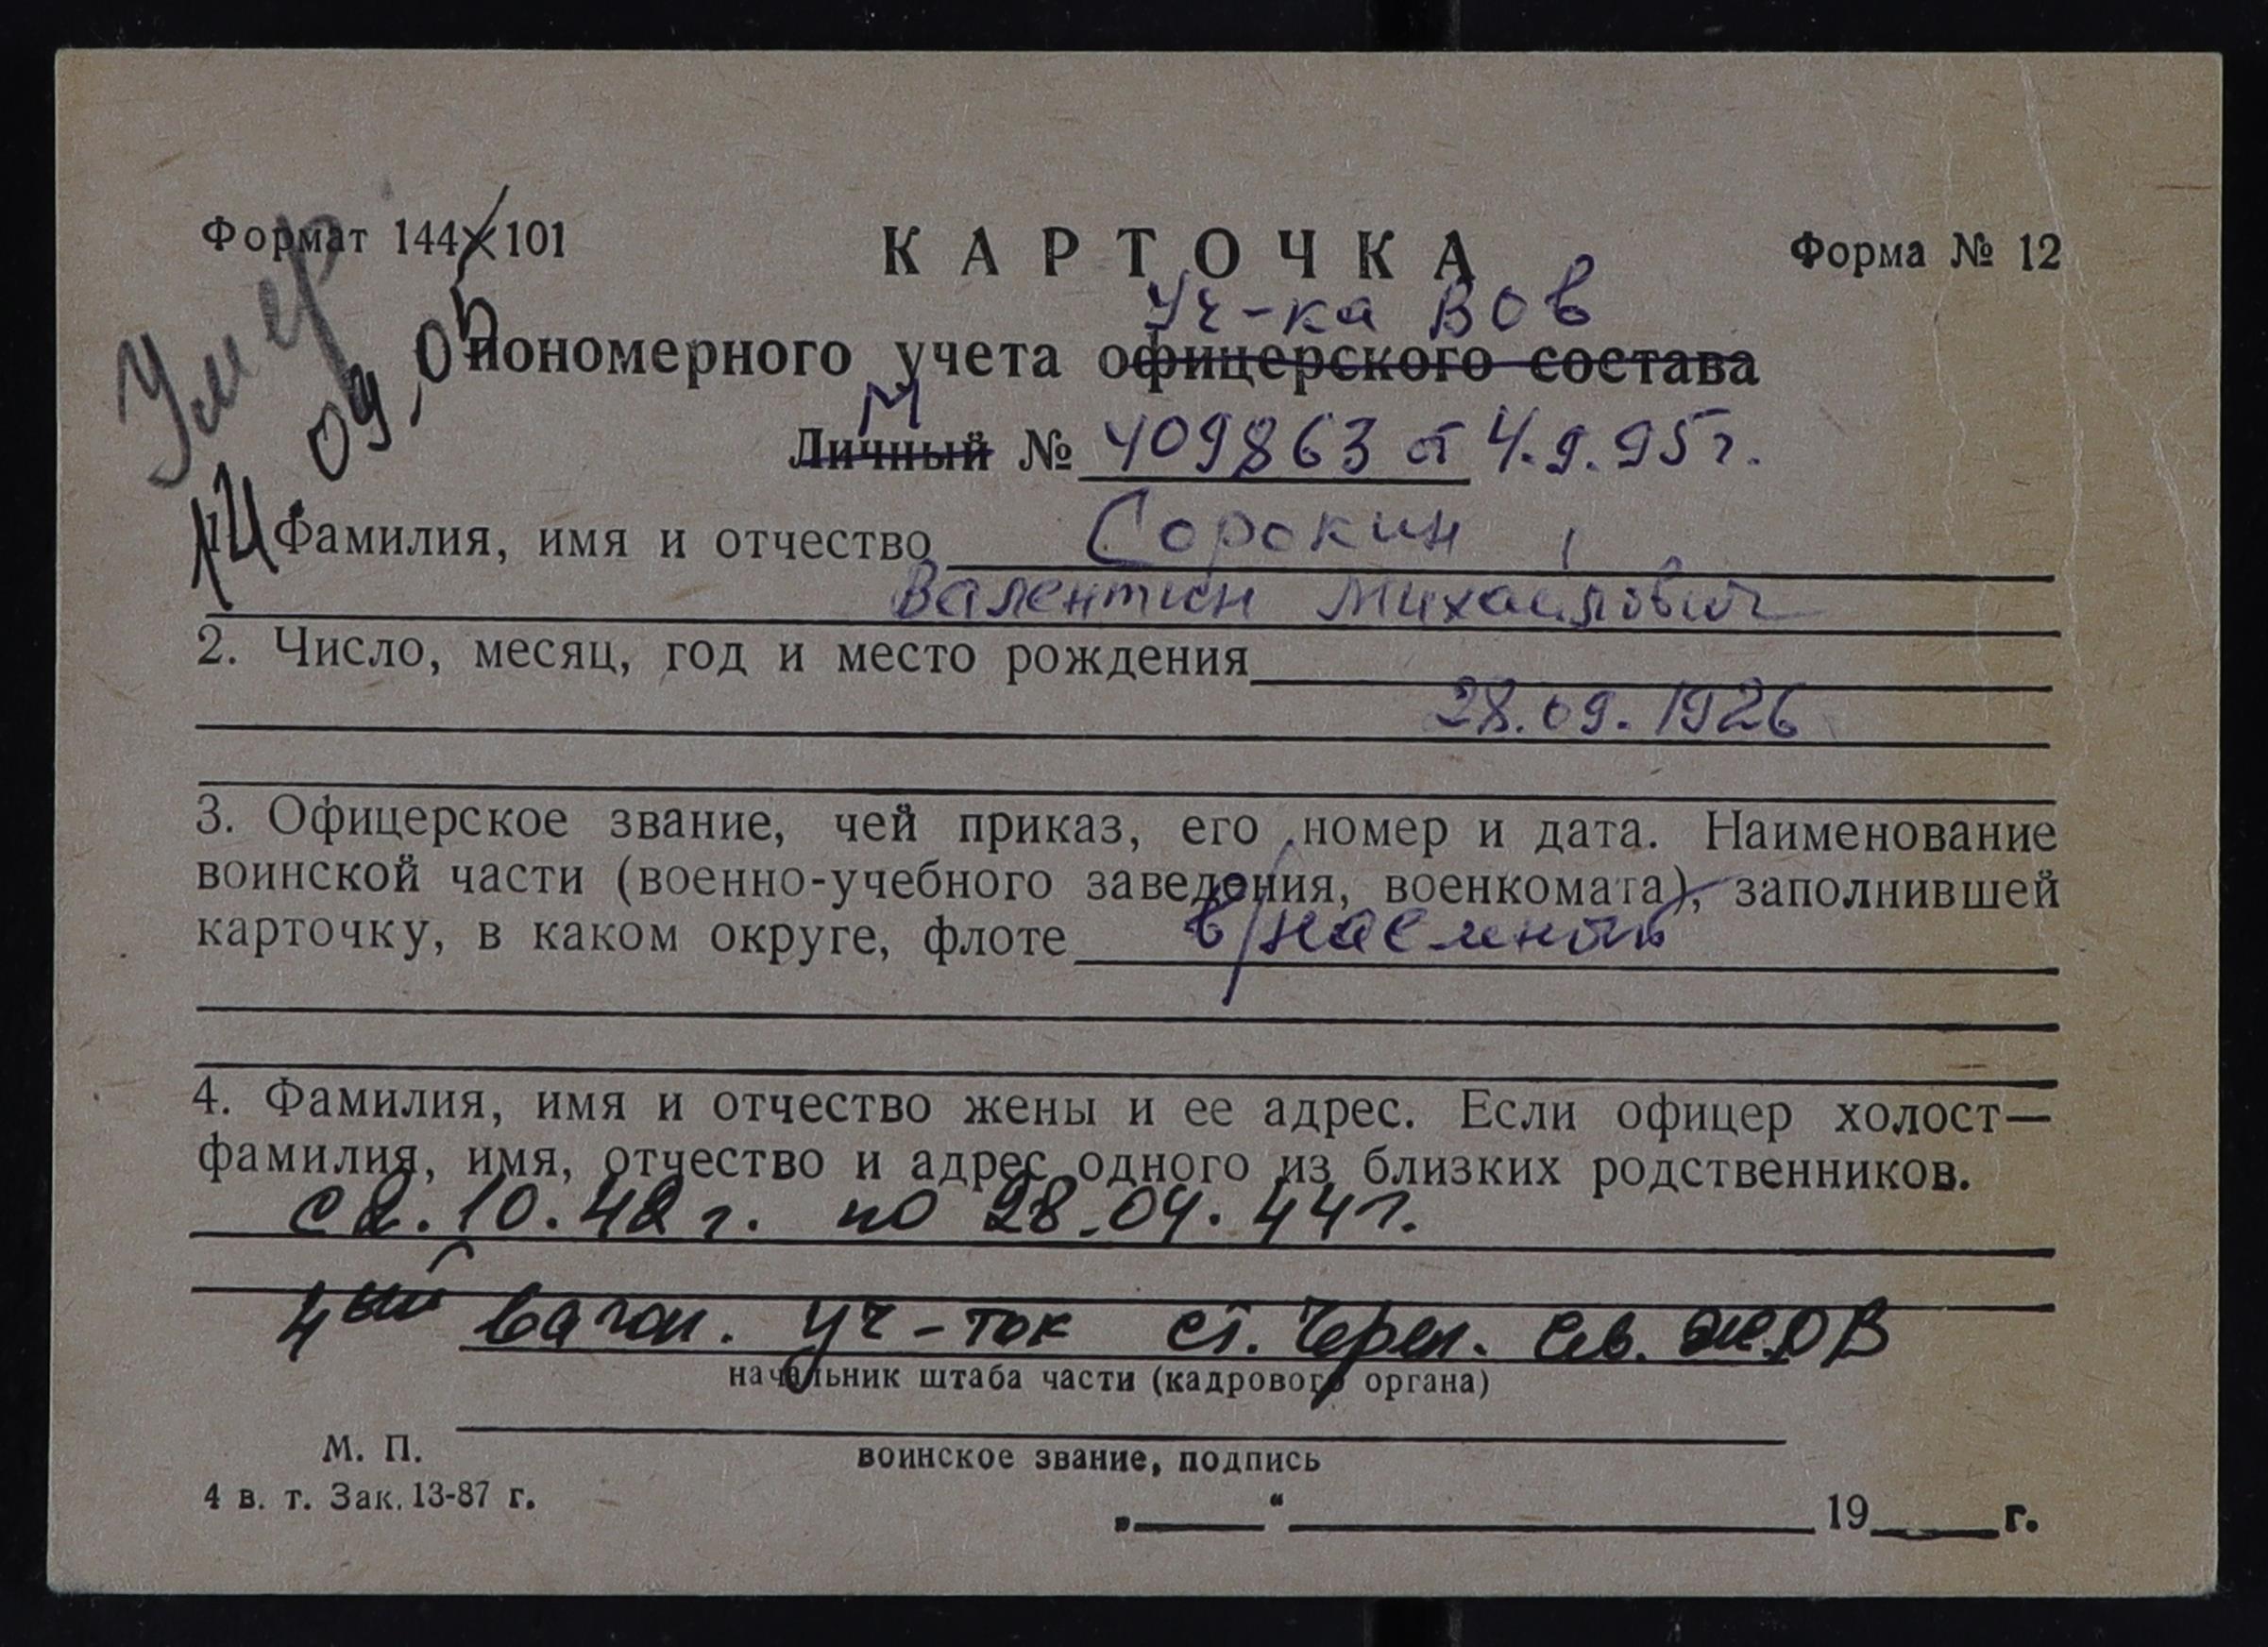 Формат 144×101
КАРТОЧКА
Форма № 12
Умер
Уч-ка ВОв
пономерного учета офицерского состава
М
Личный № 409863 от 4.9.95 г.
1. Фамилия, имя и отчество Сорокин
Валентин Михайлович
2. Число, месяц, год и место рождения
28.09.1926
3. Офицерское звание, чей приказ, его номер и дата. Наименование
воинской части (военно-учебного заведения, военкомата), заполнившей
карточку, в каком округе, флоте в/наемный
4. Фамилия, имя и отчество жены и ее адрес. Если офицер холост—
фамилия, имя, отчество и адрес одного из близких родственников.
с 2.10.42 г. по 28.04.44 г.
4ый вагон. уч-ток ст. Череп. Сев. ж.д В
начальник штаба части (кадрового органа)
М. П.
воинское звание, подпись
4 в. т. Зак. 13-87 г.
„ “ 19 г.